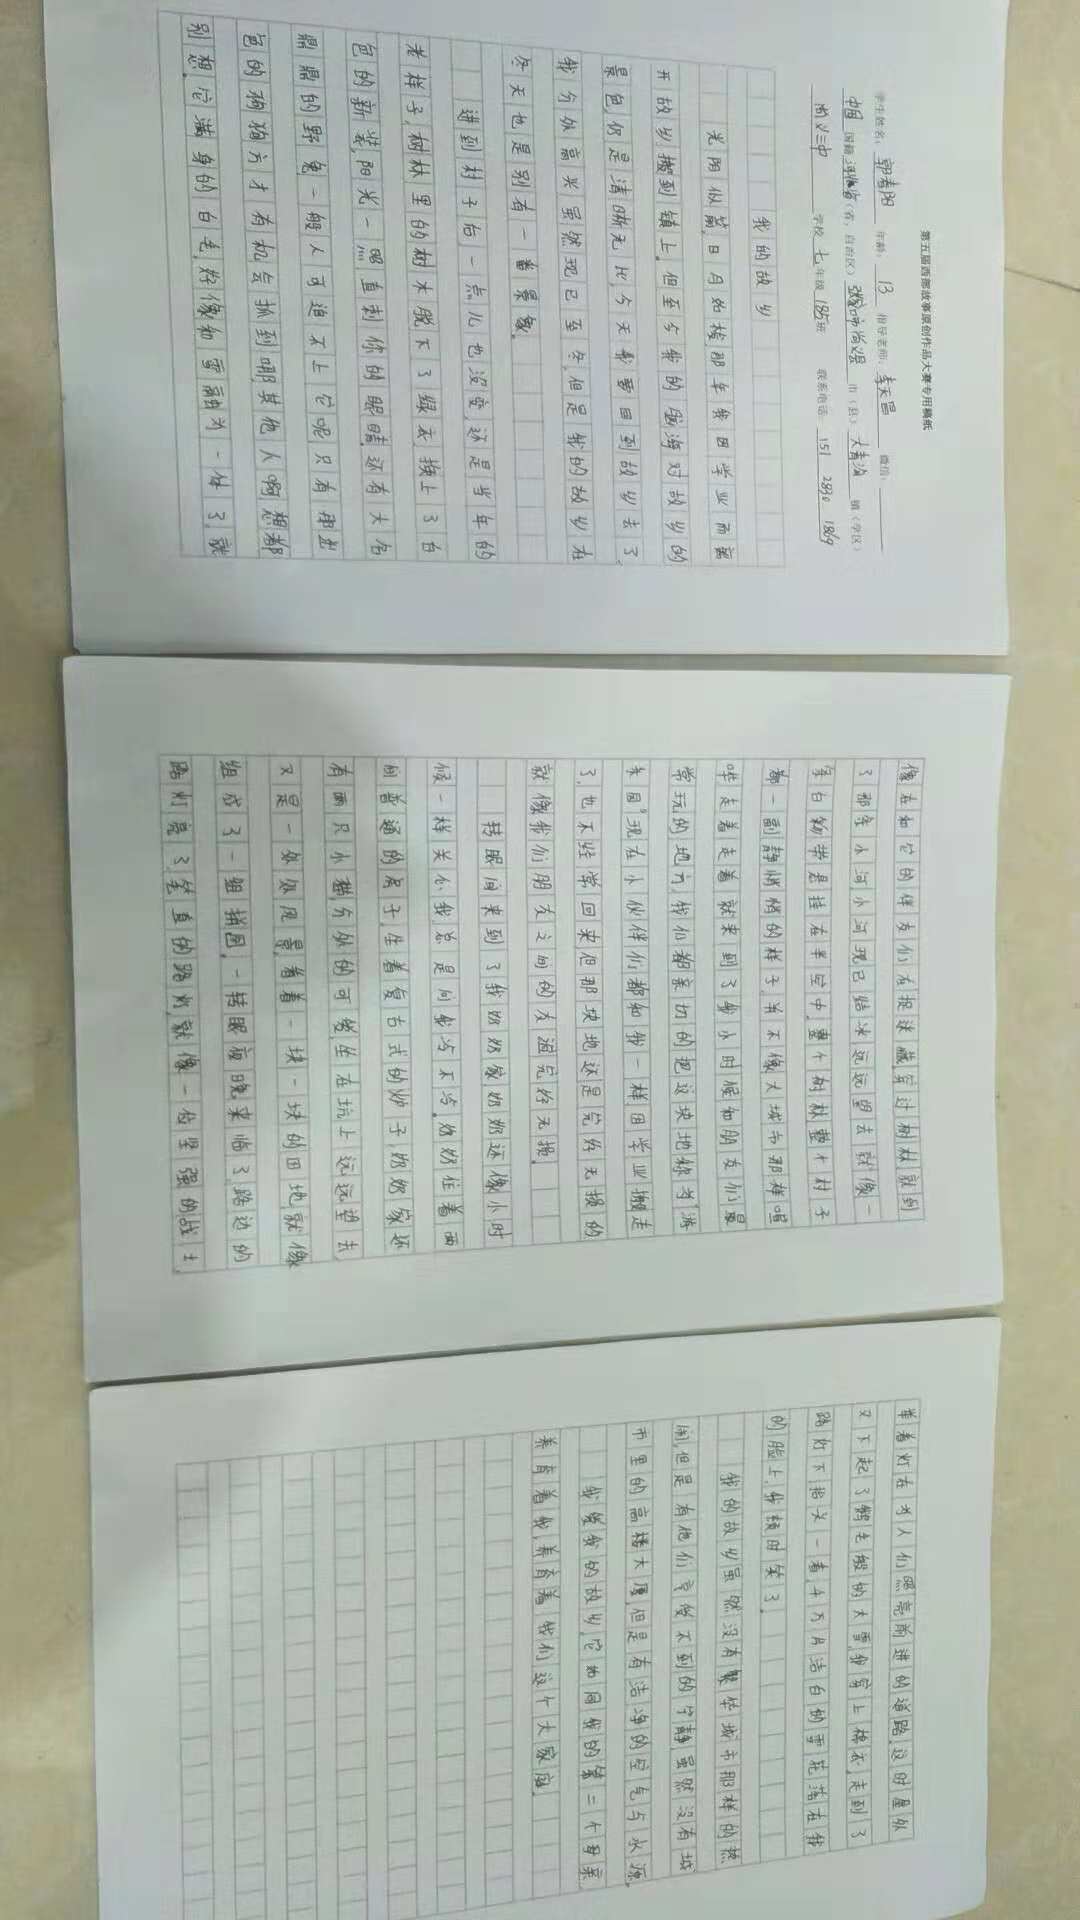 第五届西部故事原创作品大赛专用稿纸
学生姓名：郭春阳 年龄：13 指导老师：李天昌 微信：
中国 国籍 河北省（省，自治区）张家口市尚义县 市（县）大青沟 镇（学区）
尚义三中 学校 七年级 185班 联系电话 151 2830 1869
我的故乡
光阴似箭，日月如梭那年我因学业而离
开故乡，搬到镇上。但至今我的脑海对故乡的
景色仍是清晰无比，今天我要回到故乡去了，
我分外高兴虽然现已至冬，但是我的故乡在
冬天也是别有一番景象。
进到村子后一点儿也没变，还是当年的
老样子，树林里的树木脱下了绿衣换上了白
色的新装，阳光一照直刺你的眼睛，还有大名
鼎鼎的野兔一般人可追不上它呢只有那出
色的狗狗方才有机会抓到哪，其他人啊想都
别想，它满身的白毛，好像和雪融为一体了，就
像在和它的伴友们在捉迷藏，穿过树林就到
了那条小河，小河现已结冰远远望去就像一
条白绸带悬挂在半空中，整个树林整个村子
都一副静悄悄的样子，并不像大城市那样喧
哗走着走着就来到了我小时候和朋友们最
常玩的地方，我们都亲切的把这块地称为“游
乐园”，现在小伙伴们都和我一样因学业搬走
了，也不经常回来，但那块地还是完好无损的
就像我们朋友之间的友谊完好无损。
转眼间来到了我奶奶家奶奶还像小时
候一样关心我，总是问我冷不冷，奶奶住着两
间普通的房子，生着复古式的炉子奶奶家还
有两只小猫，分外的可爱，坐在炕上远远望去
又是一处处风景，看着一块一块的田地就像
组成了一组拼图，一转眼夜晚来临了，路边的
路灯亮了，笔直的路灯，就像一位坚强的战士
举着灯在为人们照亮前进的道路，这时屋外
又下起了鹅毛般的大雪，我穿上棉衣，走到了
路灯下抬头一看，千万片洁白的雪花落在我
的脸上，我顿时笑了。
我的故乡虽然没有繁华城市那样的热
闹，但是有他们享受不到的宁静，虽然没有城
市里的高楼大厦，但是有洁净的空气与水源。
我爱我的故乡，它如同我的第二个母亲
养育着我，养育着我们这个大家庭。